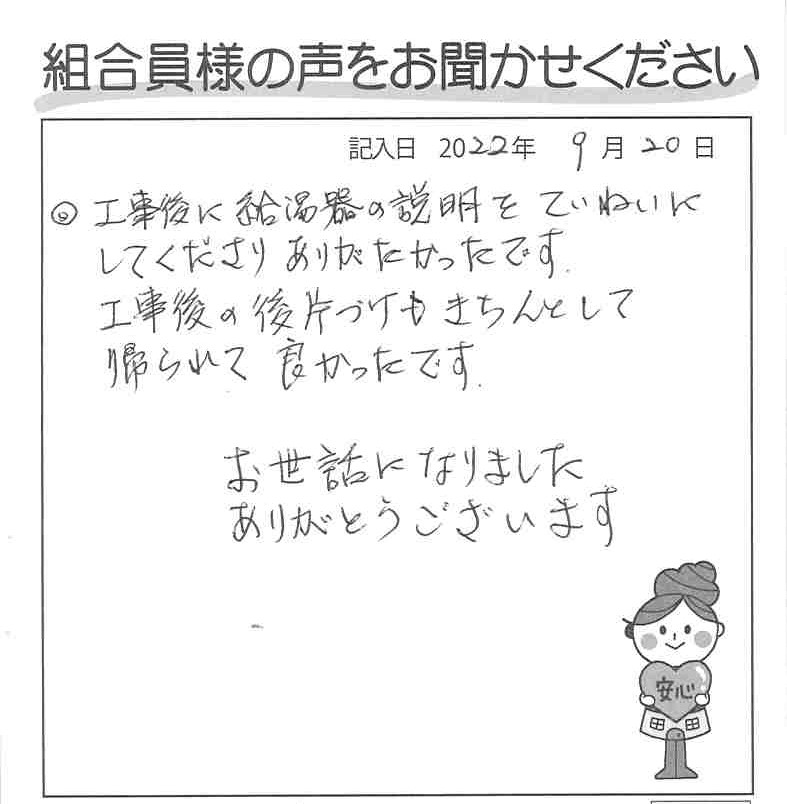 組合員様の声をお聞かせください
記入日 2022年 9月20日
◎ 工事後に給湯器の説明をていねいに
してくださりありがたかったです.
工事後の後片づけもきちんとして
帰られて 良かったです.
お世話になりました
ありがとうございます
安心